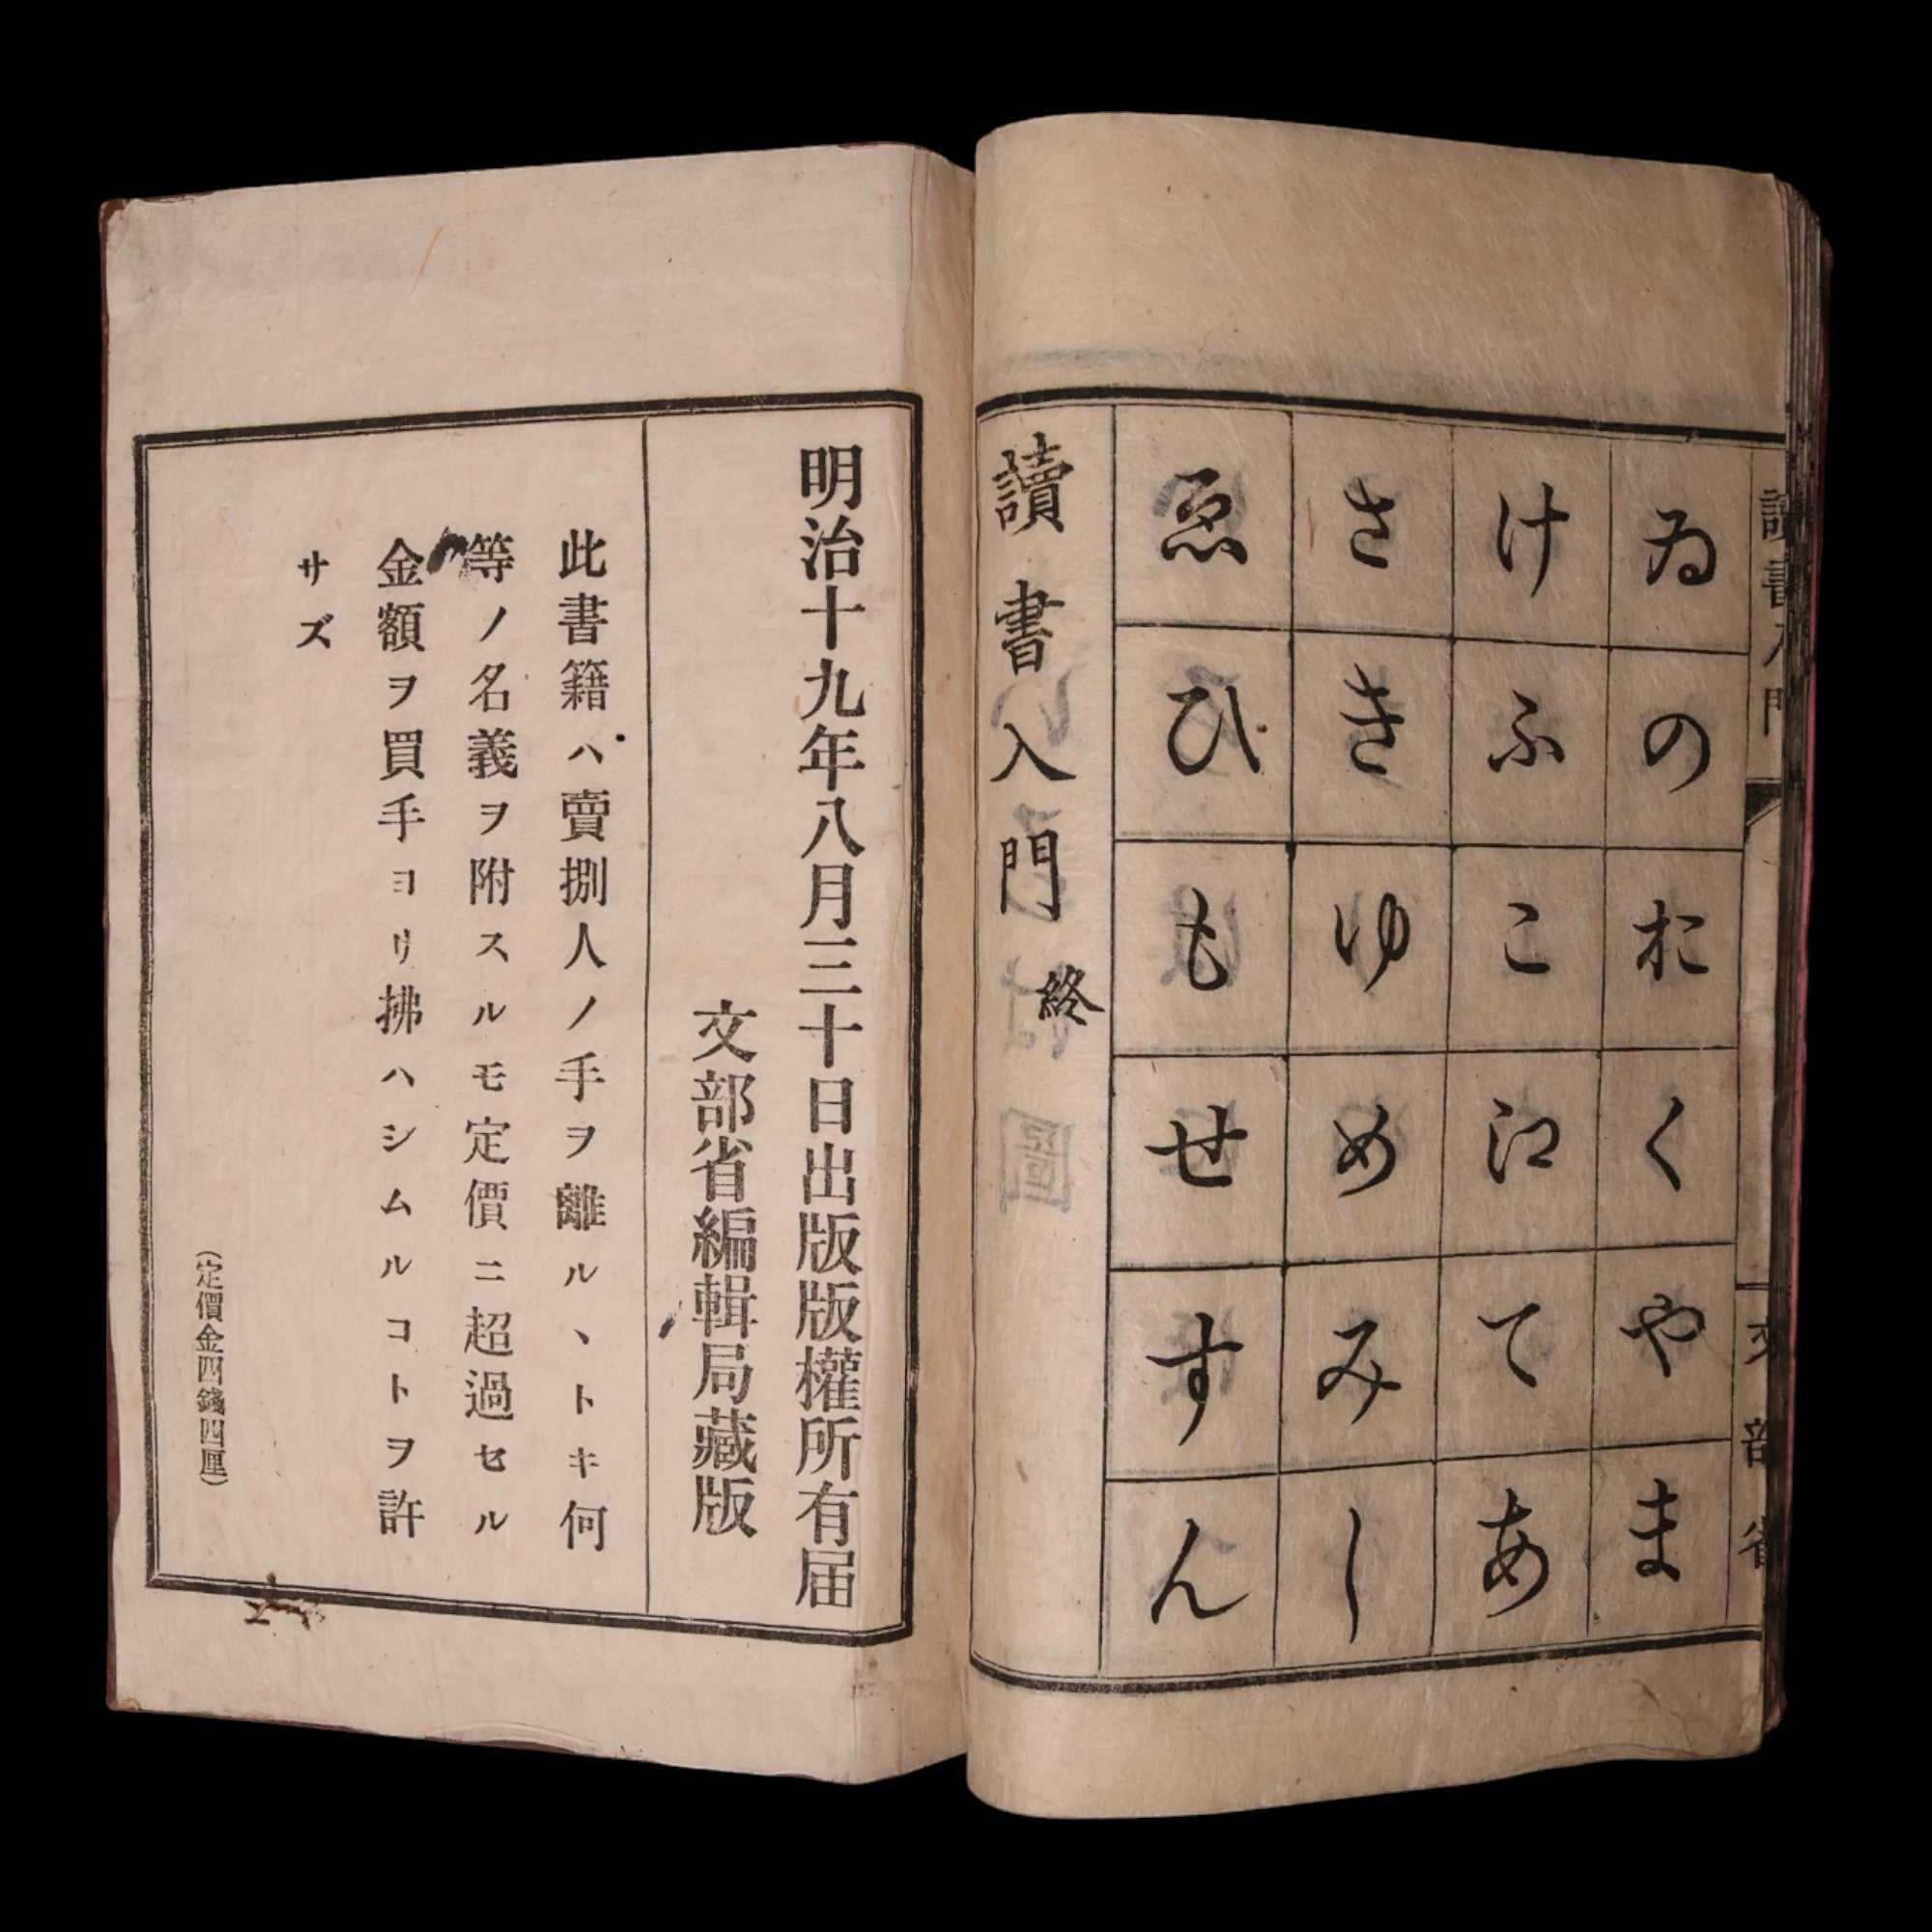 讀書入門
文部省
ゐのおくやま
けふこ江てあ
さきゆめみし
ゑひもせすん
讀書入門終
明治十九年八月三十日出版版權所有届
文部省編輯局藏版
此書籍ハ賣捌人ノ手ヲ離ルヽトキ何
等ノ名義ヲ附スルモ定價ニ超過セル
金額ヲ買手ヨリ拂ハシムルコトヲ許
サズ
(定價金四錢四厘)